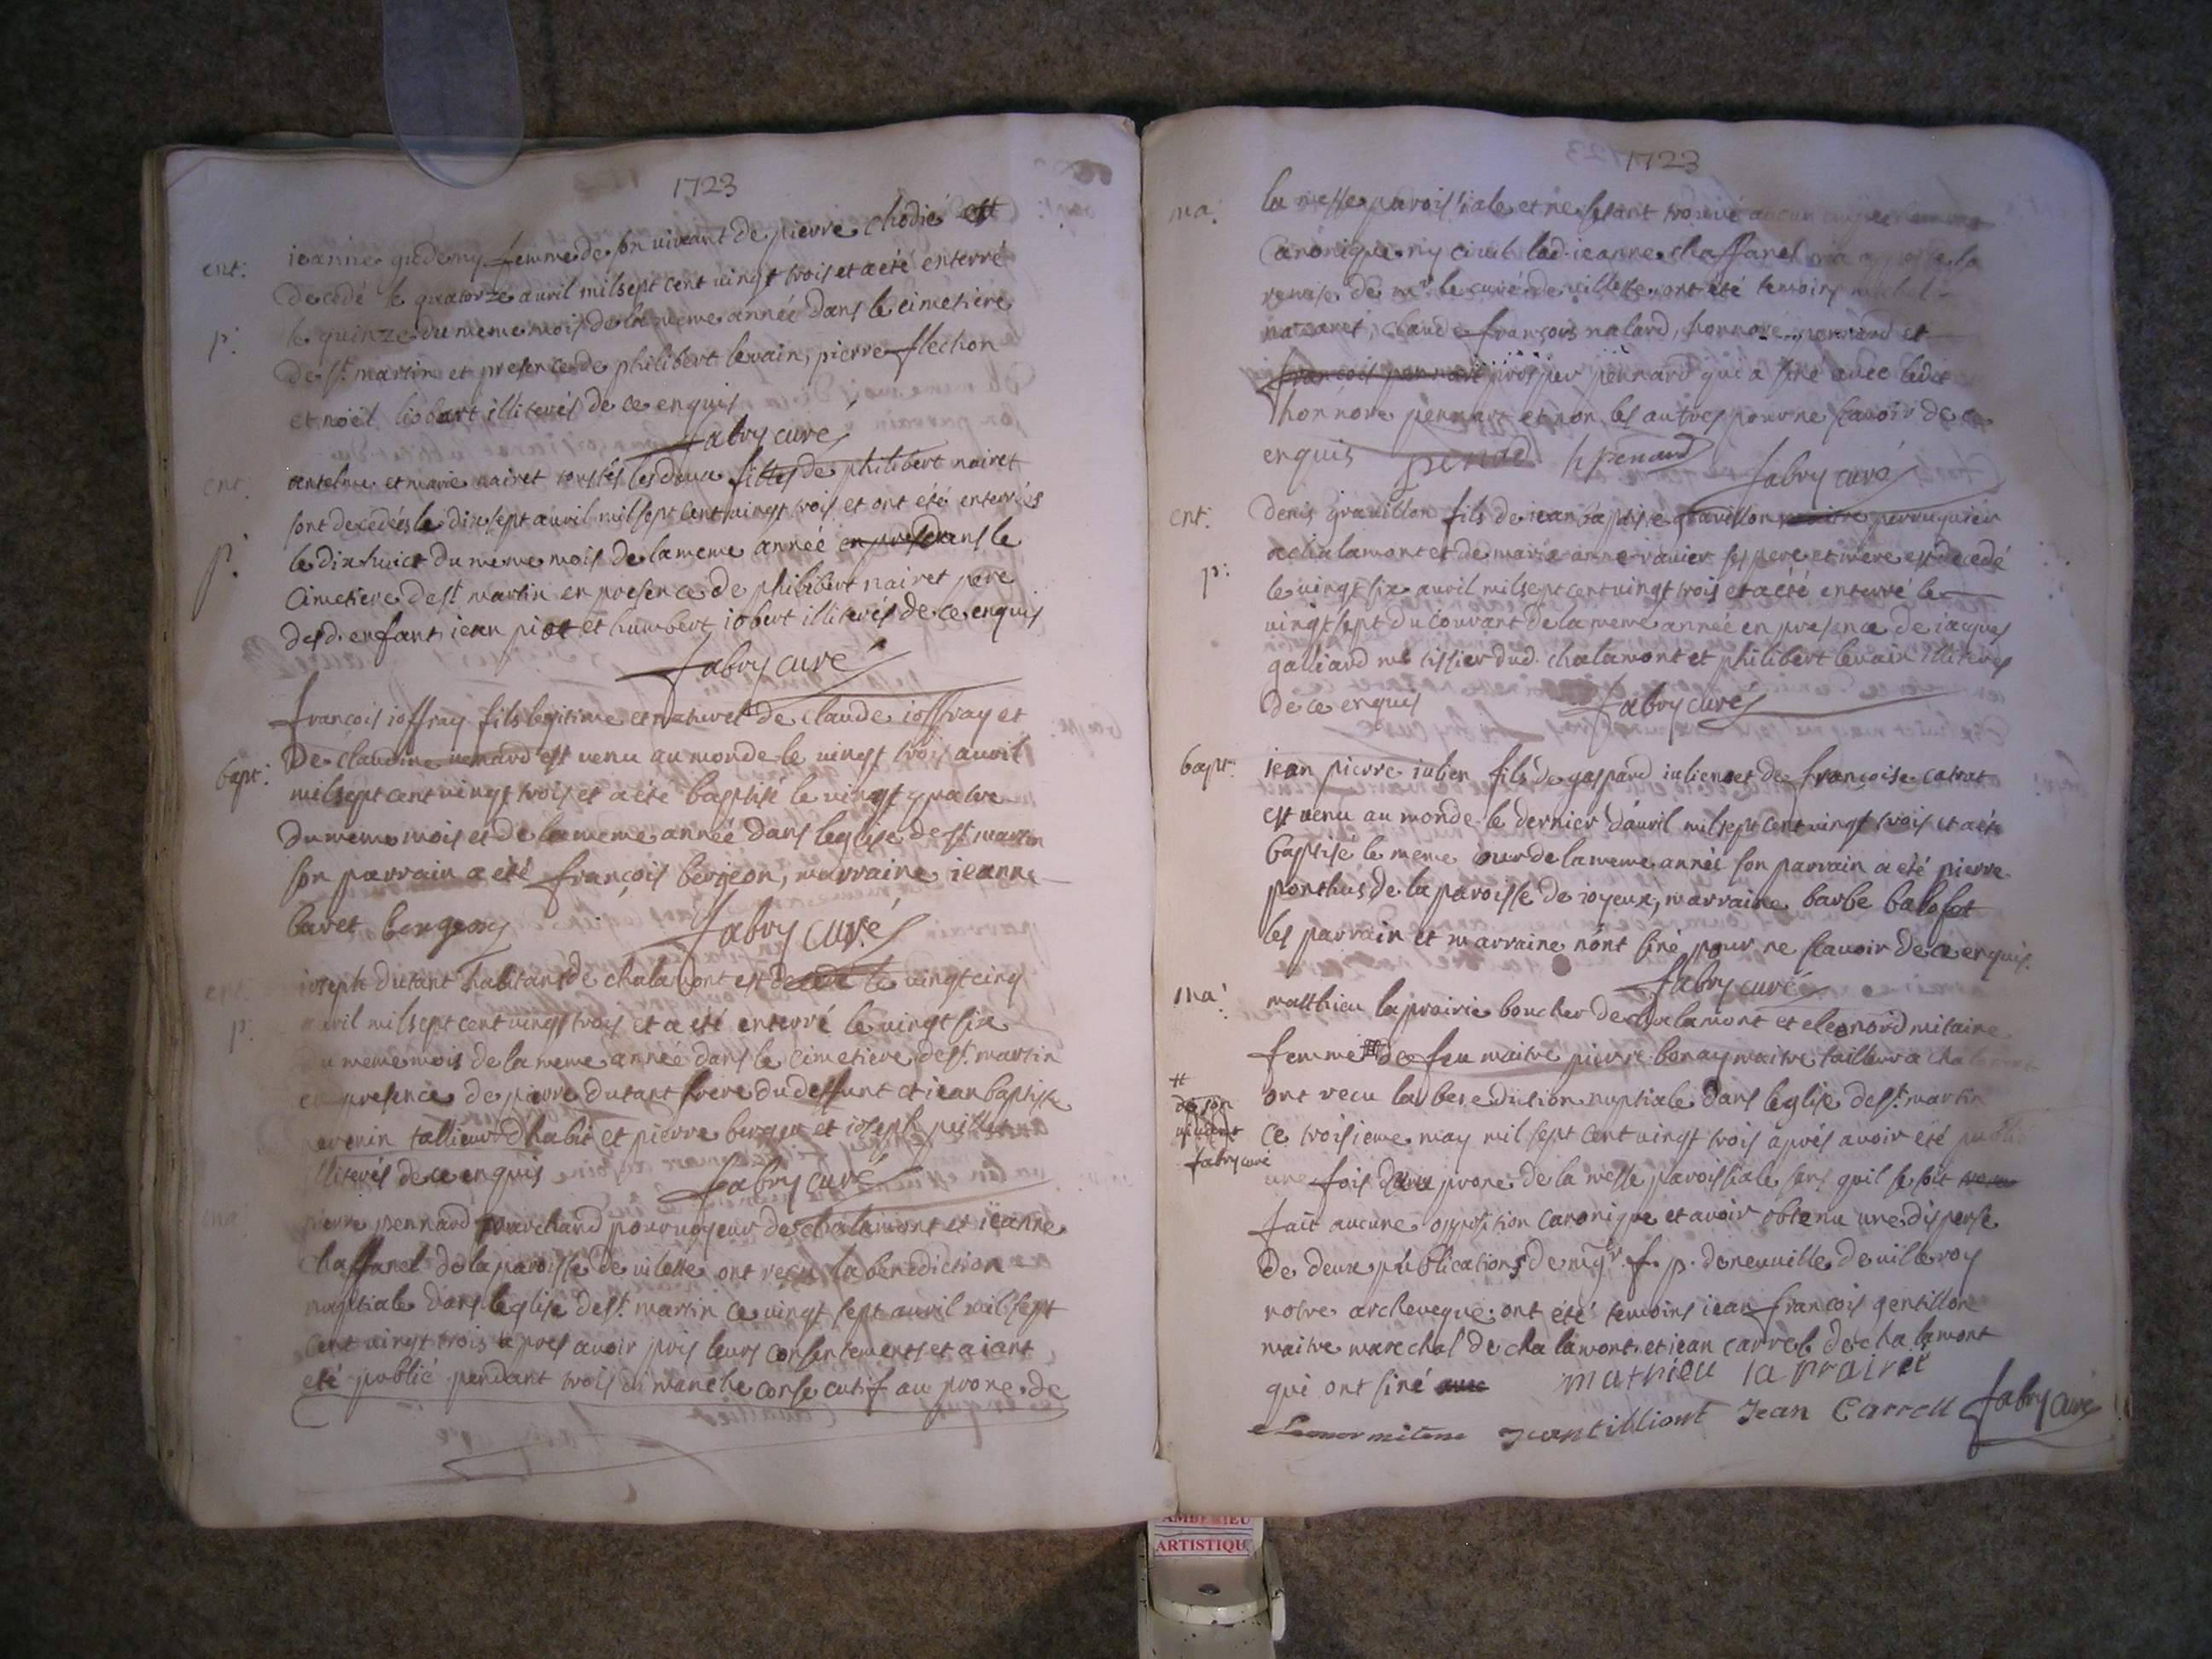 1723
ent: ieanne gudemy femme de son vivant de pierre chodié est
decedé le quatorze auril mil sept cent uingt trois et a eté enterré
p: le quinze du meme mois de la meme année dans le cimetiere
de st martin et presence de philibert leuain, pierre flechon
et noël liobart illiterés de ce enquis
fabry curé
ent: antelme et marie nairet tous les deux filles de philibert nairet
sont decedés le dix sept auril mil sept cent uingt trois et ont été enterrés
p: le dix huict du meme mois de la meme année en pres dans le
Cimetiere de st martin en presence de philibert nairet pere
desd. enfant iean piot et humbert iobert illiterés de ce enquis
fabry curé
françois ioffray fils legitime et naturel de claude ioffray et
bapt: de claudine uenard est uenu au monde le uingt trois auril
mil sept cent uingt trois et a été baptisé le uingt quatre
du meme mois et de la meme année dans leglise de st martin
son parrain a été françois bergeon, marraine ieanne
baret bergeon fabry curé
ent: ioseph dutant habitant de chalamont est decedé le uingt cinq
p: auril mil sept cent uingt trois et a eté enterré le uingt six
du meme mois de la meme année dans le cimetiere de st. martin
en presence de pierre dutant frere du deffunt et iean baptiste
tallieur dhabit et pierre berger et ioseph puillet
illiterés de ce enquis fabry curé
ma: pierre pennard marchand pouruoyeur de chalamont et ieanne
chaffanel de la paroisse de uilette ont reçu la benediction
nuptiale dans leglise de st. martin ce uingt sept auril mil sept
cent uingt trois apres auoir pris leurs consentements et aiant
eté publié pendant trois dimanche consecutif au prone de
1723
ma: la messe paroissiale et ne setant trouué aucun
Canonique ny ciuil lad. ieanne chaffanel
remise de mr le curé de uillette ont été temoins michel
claude françois nalard, honnoré pennard et
françois pennard prosper pennard qui a siné auec ledit
honnoré pennart et non les autres pour ne scauoir de ce
enquis penad h penard fabry curé
ent: denis grauillon fils de iean baptiste grauillon perruquier
a chalamont et de marie anne rauier ses pere et mere est decedé
p: le uingt six auril mil sept cent uingt trois et a eté enterré le
uingt sept du courant de la meme année en presence de iacques
galliard me tissier dud. chalamont et philibert leuain illiterés
de ce enquis fabry curé
bapt: iean pierre iulien fils de gaspard iulien et de françoise catrat
est uenu au monde le dernier d'auril mil sept cent uingt trois et a eté
baptisé le meme iour de la meme année son parrain a été pierre
ponthus de la paroisse de ioyeux, marraine barbe balofet
les parrain et marraine nont siné pour ne scauoir de ce enquis.
fabry curé
ma: matthieu la prairie boucher de chalamont et eleonord mitaine
femme # de feu maitre pierre bonay maitre tailleur a
# de son uiuant fabry curé
ont recu la benediction nuptiale dans leglise de st. martin
ce troisieme may mil sept cent uingt trois après auoir été
une fois au prone de la messe paroissiale sans quil se soit
fait aucune opposition canonique et auoir obtenu une dispense
de deux publications de mgr. f. p. de neuuille de uilleroy
notre archeueque ont été temoins iean françois gentillon
maitre marechal de chalamont et iean carrel de chalamont
qui ont siné auec mathieu la prairet
eleonor mitene Jentilliont Jean Carrell fabry curé
AMBERIEU
ARTISTIQU